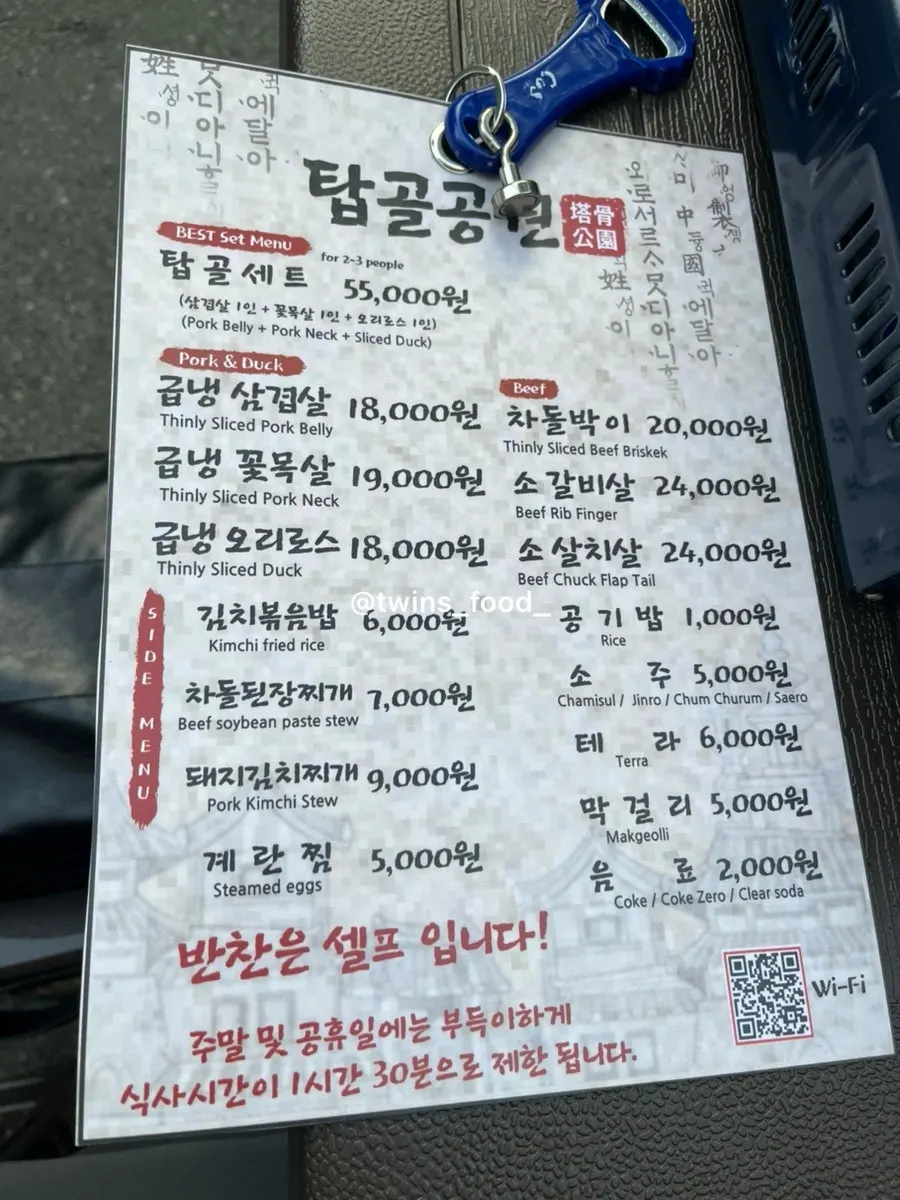 탑골공원
塔骨
公園
BEST Set Menu
탑골세트 for 2~3 people 55,000원
(삼겹살 1인 + 꽃목살 1인 + 오리로스 1인)
(Pork Belly + Pork Neck + Sliced Duck)
Pork & Duck
급냉 삼겹살 18,000원
Thinly Sliced Pork Belly
급냉 꽃목살 19,000원
Thinly Sliced Pork Neck
급냉 오리로스 18,000원
Thinly Sliced Duck
Beef
차돌박이 20,000원
Thinly Sliced Beef Briskek
소갈비살 24,000원
Beef Rib Finger
소살치살 24,000원
Beef Chuck Flap Tail
@twins_food_
SIDE MENU
김치볶음밥 6,000원
Kimchi fried rice
차돌된장찌개 7,000원
Beef soybean paste stew
돼지김치찌개 9,000원
Pork Kimchi Stew
계란찜 5,000원
Steamed eggs
공기밥 1,000원
Rice
소주 5,000원
Chamisul / Jinro / Chum Churum / Saero
테라 6,000원
Terra
막걸리 5,000원
Makgeolli
음료 2,000원
Coke / Coke Zero / Clear soda
반찬은 셀프 입니다!
Wi-Fi
주말 및 공휴일에는 부득이하게
식사시간이 1시간 30분으로 제한 됩니다.